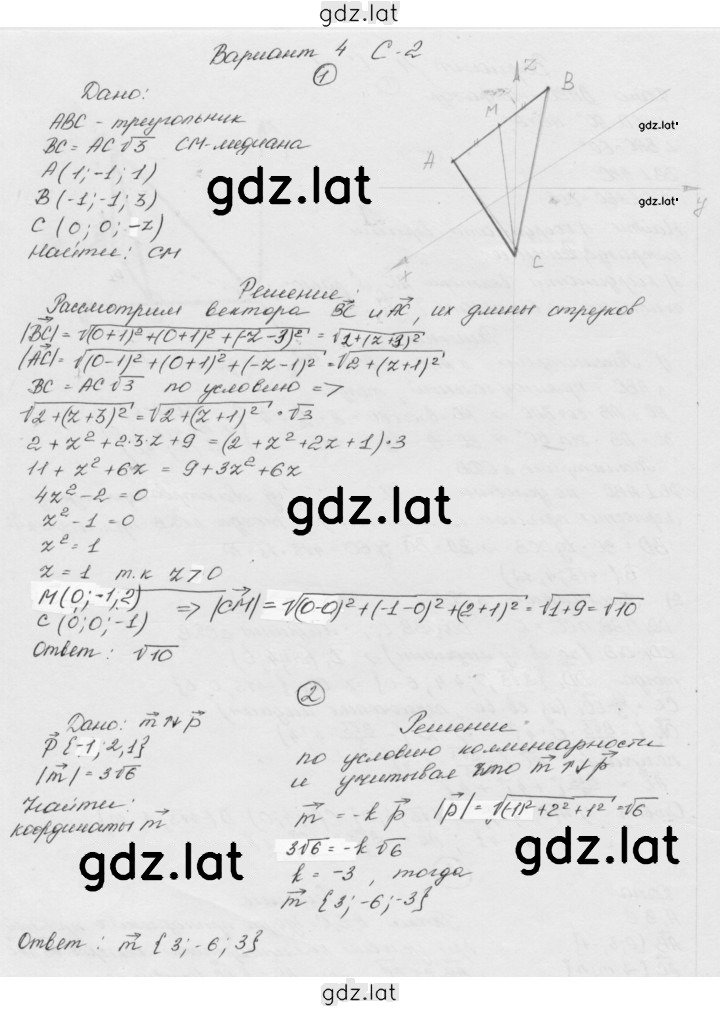 gdz.lat
Вариант 4 С-2
1
Дано:
ABC - треугольник
BC = AC√3 CM-медиана
A(1;-1;1)
B(-1;-1;3)
C(0;0;-z)
Найти: CM
z
B
M
A
C
x
y
gdz.lat
gdz.lat
gdz.lat
Решение:
Рассмотрим вектора BC и AC, их длины отрезков
|BC| = √(0+1)²+(0+1)²+(-z-3)² = √2+(z+3)²
|AC| = √(0-1)²+(0+1)²+(-z-1)² = √2+(z+1)²
BC = AC√3 по условию =>
√2+(z+3)² = √2+(z+1)² · √3
2+z²+2·3·z+9 = (2+z²+2z+1)·3
11+z²+6z = 9+3z²+6z
4z²-2=0
z²-1=0
z²=1
z=1 т.к z>0
gdz.lat
M(0;-1;2)
C(0;0;-1)
=> |CM| = √(0-0)²+(-1-0)²+(2+1)² = √1+9 = √10
Ответ: √10
2
Дано: m↑↓p
p{-1;2;1}
|m|=3√6
Найти:
координаты m
Решение:
по условию коллинеарности
и учитывая что m↑↓p
m = -k p |p| = √(-1)²+2²+1² = √6
3√6 = -k√6
k = -3, тогда
m {3;-6;-3}
gdz.lat
gdz.lat
Ответ: m {3;-6;3}
gdz.lat